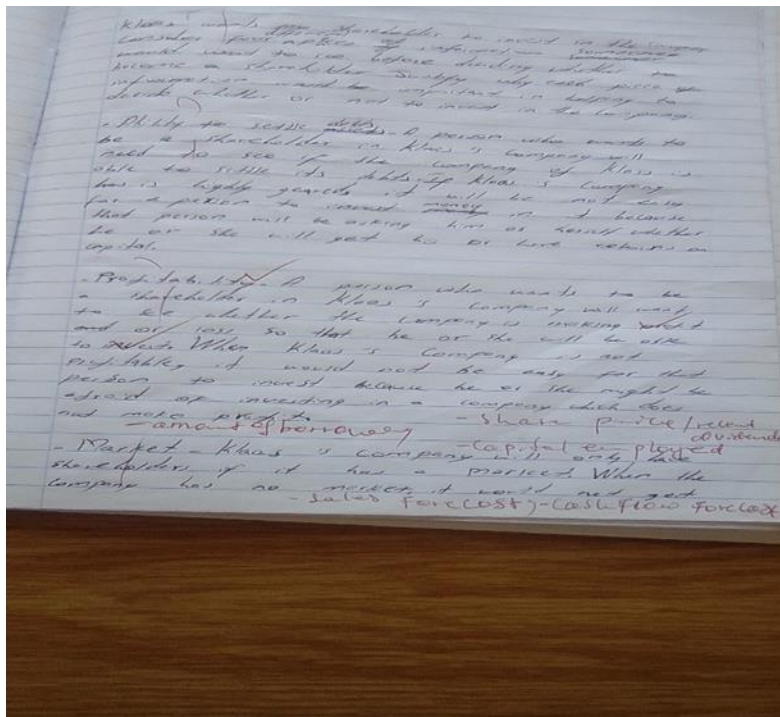 Klaas wants shareholders to invest in the company
Consider four pieces of information someone
would want to see before deciding whether to
become a shareholder Justify why each piece of
information would be important in helping to
decide whether or not to invest in the company.
- Ability to settle debts - A person who wants to
be a shareholder in Klaas's company will
need to see if the company of Klaas is
able to settle its debts. If Klaas's company
has is highly geared it will be not easy
for a person to invest money in it because
that person will be asking him or herself whether
he or she will get his or hers returns on
capital.
- Profitability - A person who wants to be
a shareholder in Klaas's company will want
to see whether the company is making profit
and or loss so that he or she will be able
to When Klaas's company is not
profitable, it would not be easy for that
person to invest because he or she might be
afraid of investing in a company which does
not make profits
- amount of borrowing - Share price / recent dividends
- Capital employed
- Market - Klaas's company will only have
shareholders if it has a market. When the
company has no market, it would not get
- Sales forecast, - Cashflow forecast